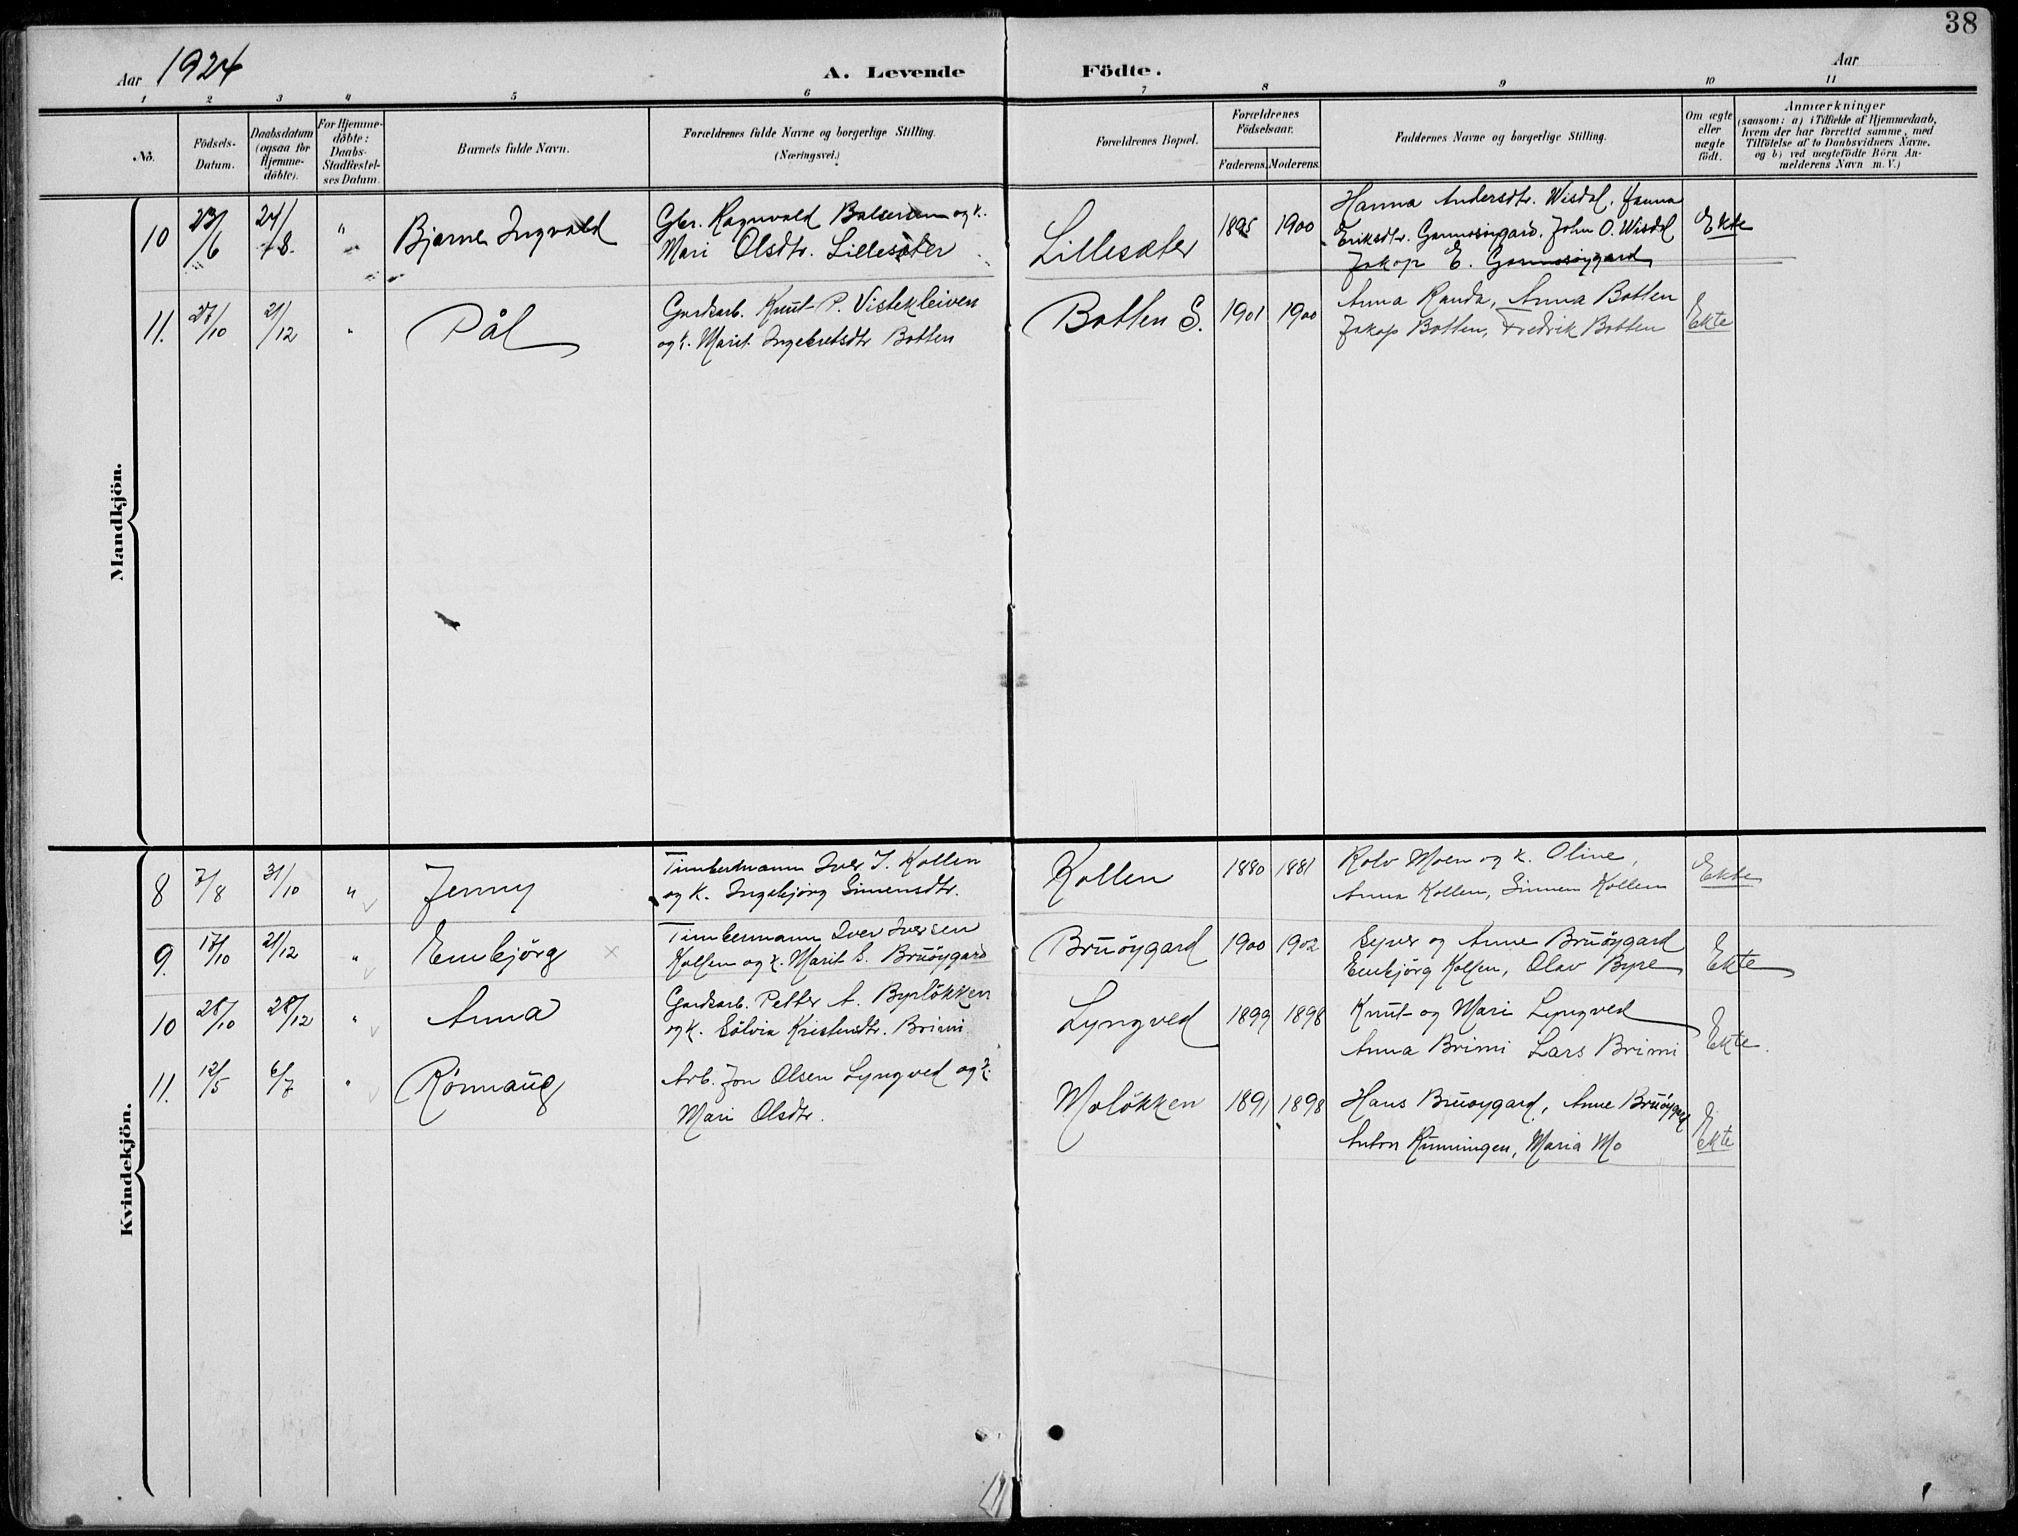 38
Aar 1924
A. Levende Födte.
Aar
1 2 3 4 5 6 7 8 9 10 11
No.
Födsels-Datum.
Daabsdatum (ogsaa for Hjemme-döbte).
For Hjemme-döbte: Daabs-Stadfæstel-ses Datum.
Barnets fulde Navn.
Forældrenes fulde Navne og borgerlige Stilling.
(Næringsvei.)
Forældrenes Bopæl.
Forældrenes Födselsaar.
Faderens. Moderens.
Faddernes Navne og borgerlige Stilling.
Om ægte eller uægte födt.
Anmærkninger
(saasom: a) i Tilfælde af Hjemmedaab,
hvem der har forrettet samme, med
Tilföielse af to Daabsvidners Navne.
og b) ved uægtefödte Börn An-
melderens Navn m. V.)
Mandkjön.
10 23/6 24/8 " Bjarne Ingvald
Gbr. Ragnvald Balsersen og k.
Mari Olsdtr. Lillesæter
Lillesæter 1895 1900
Hanna Andersdtr. Wisdal,
Eriksdtr. Garmosøygard, John O. Wisdal
Jakop E. Garmosøygard
Ekte
11. 27/10 21/12 " Pål
Gardsarb. Knut P. Vistekleiven
og k. Marit Ingebretsdtr Botten
Botten S. 1901 1900
Anna Randa, Anna Botten
Jakop Botten, Fredrik Botten
Ekte
Kvindekjön.
8 7/8 31/10 " Jenny
Timbermann Iver I. Kollen
og k. Ingebjörg Simensdtr.
Kollen 1880 1881
Rolv Moen og k. Oline,
Anna Kollen, Simen Kollen
Ekte
9. 17/10 21/12 " Embjörg
Timbermann Iver Iversen
Kollen og k. Marit S. Bruöygard
Bruöygard 1900 1902
Syver og Anne Bruöygard
Embjörg Kollen, Olav Byre
Ekte
10 28/10 28/12 " Anna
Gardsarb. Petter A. Byrlökken
og k. Sölvia Kristensdtr. Brimi
Lyngved 1899 1898
Knut og Mari Lyngved
Anna Brimi Lars Brimi
Ekte.
11. 12/5 6/7 " Rönnaug
Arb. Jon Olsen Lyngved og k.
Mari Olsdtr.
Molökken 1891 1898
Hans Bruöygard, Anne Bruöygard
Anton Runningen, Maria Mo
Ekte